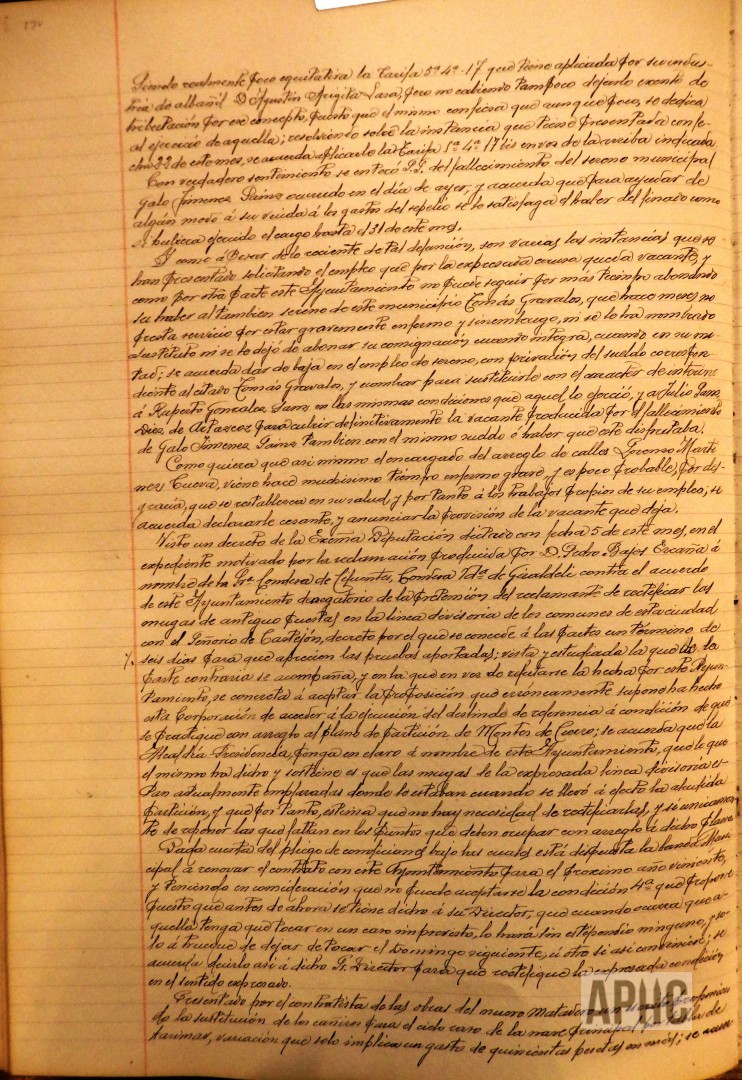 Siendo realmente poco equitativa la Tarifa 5ª 4ª-17 que tiene aplicada por su indus-
tria de albañil D. Agustin Argita Lasa, pero no cabiendo tampoco dejarlo exento de
tributación por ese concepto, puesto que el mismo confiesa que aunque poco, se dedica
al ejercicio de aquella; resolviendo sobre la instancia que tiene presentada con fe-
cha 22 de este mes, se acuerda aplicarle la Tarifa 5ª 4ª 17 bis en vez de la arriba indicada.
Con verdadero sentimiento se enteró S.S. del fallecimiento del sereno municipal
Galo Jimenez Sainz ocurrido en el día de ayer, y acuerda que para ayudar de
algún modo á su viuda á los gastos del sepelio se le satisfaga el haber del finado como
si hubiera ejercido el cargo hasta el 31 de este mes.
Y como á pesar de lo reciente de tal defunción, son varias las instancias que se
han presentado solicitando el empleo que por la expresada causa queda vacante, y
como por otra parte este Ayuntamiento no puede seguir por más tiempo abonando
su haber al tambien sereno de este municipio Tomás Gravalos, que hace meses no
presta servicio por estar gravemente enfermo y sin embargo, ni se le ha nombrado
sustituto ni se le dejó de abonar su consignación cuando integra, cuando en su mi-
tad; se acuerda dar de baja en el empleo de sereno, con privación del sueldo correspon-
diente al citado Tomás Gravalos, y nombrar para sustituirle con el caracter de interino
á Ruperto Gonzalez Sanz en las mismas condiciones que aquel lo ejerció, y a Julio Sanz
Diez de Ulzurrun para cubrir definitivamente la vacante producida por el fallecimiento
de Galo Jimenez Sainz tambien con el mismo sueldo ó haber que este disfrutaba.
Como quiera que asi mismo el encargado del arreglo de calles Lorenzo Marti-
nez Cueva, viene hace muchisimo tiempo enfermo grave, y es poco probable, por des-
gracia, que se restablezca en su salud, y por tanto á los trabajos propios de su empleo; se
acuerda declararle cesante, y anunciar la provisión de la vacante que deja.
Visto un decreto de la Excma Diputación dictado con fecha 5 de este mes, en el
expediente motivado por la reclamación producida por D. Pedro Bajos Escaña á
nombre de la Sra. Condesa de Cifuentes, Condesa Vda. de Giraldeli contra el acuerdo
de este Ayuntamiento denegatorio de la pretensión del reclamante de rectificar las
mugas de antiguo puestas en la linea divisoria de los comunes de esta ciudad
con el Señorio de Castejón, decreto por el que se concede á las partes un término de
seis dias para que aprecien las pruebas aportadas; vista y estudiada la que de la
parte contraria se acompaña, y en la que en vez de refutarse la hecha por este Ayun-
tamiento, se concreta á aceptar la proposición que erróneamente supone ha hecho
esta Corporación de acceder á la ejecución del deslinde de referencia á condición de que
se practique con arreglo al plano de partición de Montes de Cierzo; se acuerda que la
Alcaldia Presidencia, ponga en claro á nombre de este Ayuntamiento, que lo que
el mismo ha dicho y sostiene es que las mugas de la expresada linea divisoria es-
tan actualmente emplazadas donde lo estaban cuando se llevó á efecto la aludida
partición, y que por tanto, estima que no hay necesidad de rectificarlas, y se unicamen-
te de reponer las que faltan en los puntos que deben ocupar con arreglo á dicho plano.
Dada cuenta del pliego de condiciones bajo las cuales está dispuesta la banda Muni-
cipal á renovar el contrato con este Ayuntamiento para el proximo año viniente,
y teniendo en consideración que no puede aceptarse la condición 4ª que propone
puesto que antes de ahora se tiene dicho á su Director, que cuando ocurra que a-
quella tenga que tocar en un caso imprevisto, lo hará sin estipendio ninguno, y so-
lo á trueque de dejar de tocar el Domingo siguiente, ú otro si asi conviniere; se
acuerda decirlo asi á dicho Sr. Director para que rectifique la expresada condición
en el sentido expresado.
Presentado por el contratista de las obras del nuevo Matadero un
do la sustitución de los cañizos para el cielo raso de la nave principal por de
tarimas, variación que solo implica un gasto de quinientas pesetas en más; se acuer
APHC